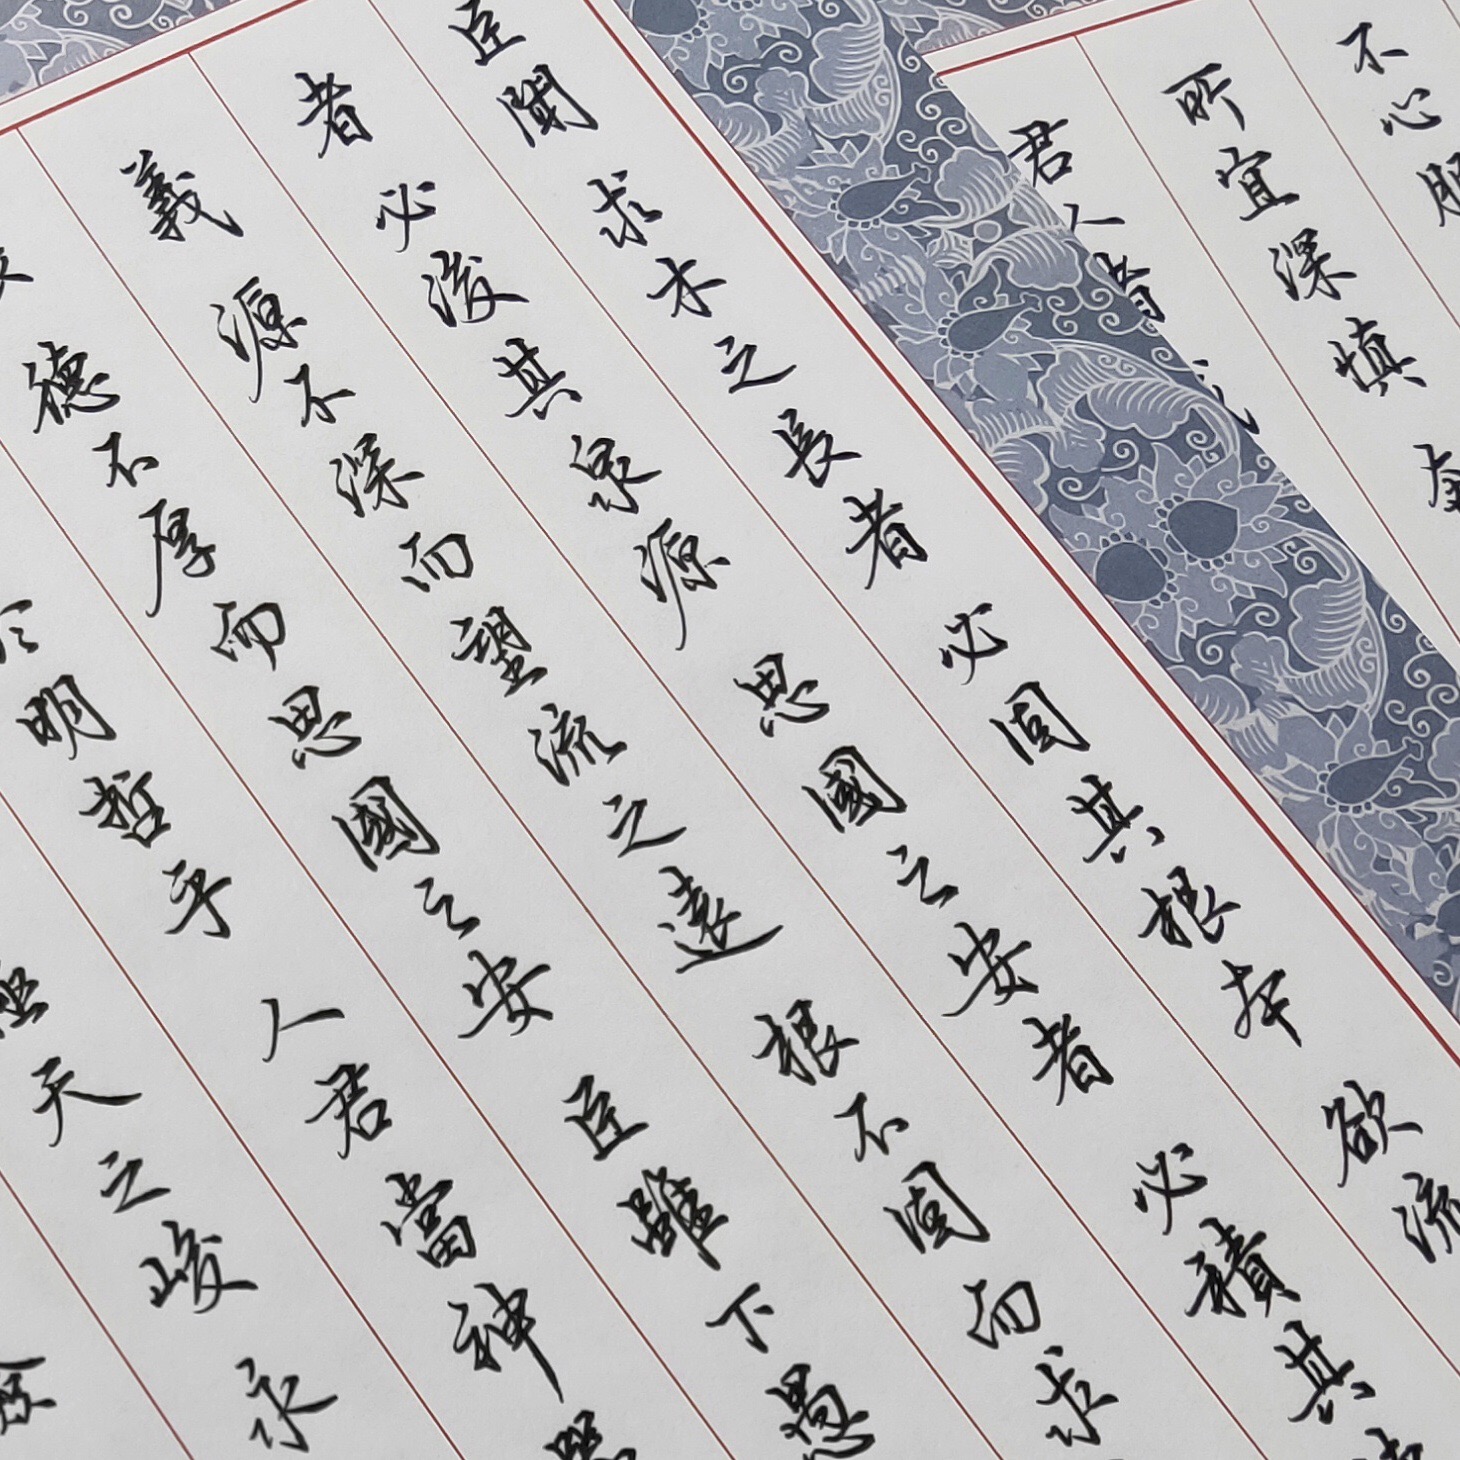 不心
所宜深慎
君人者
臣聞求木之長者必固其根本欲流
者必浚其泉源思國之安者必積其
義源不深而望流之遠根不固而求
德不厚而思國之安臣雖下愚
於明哲乎人君當神器
極天之峻永